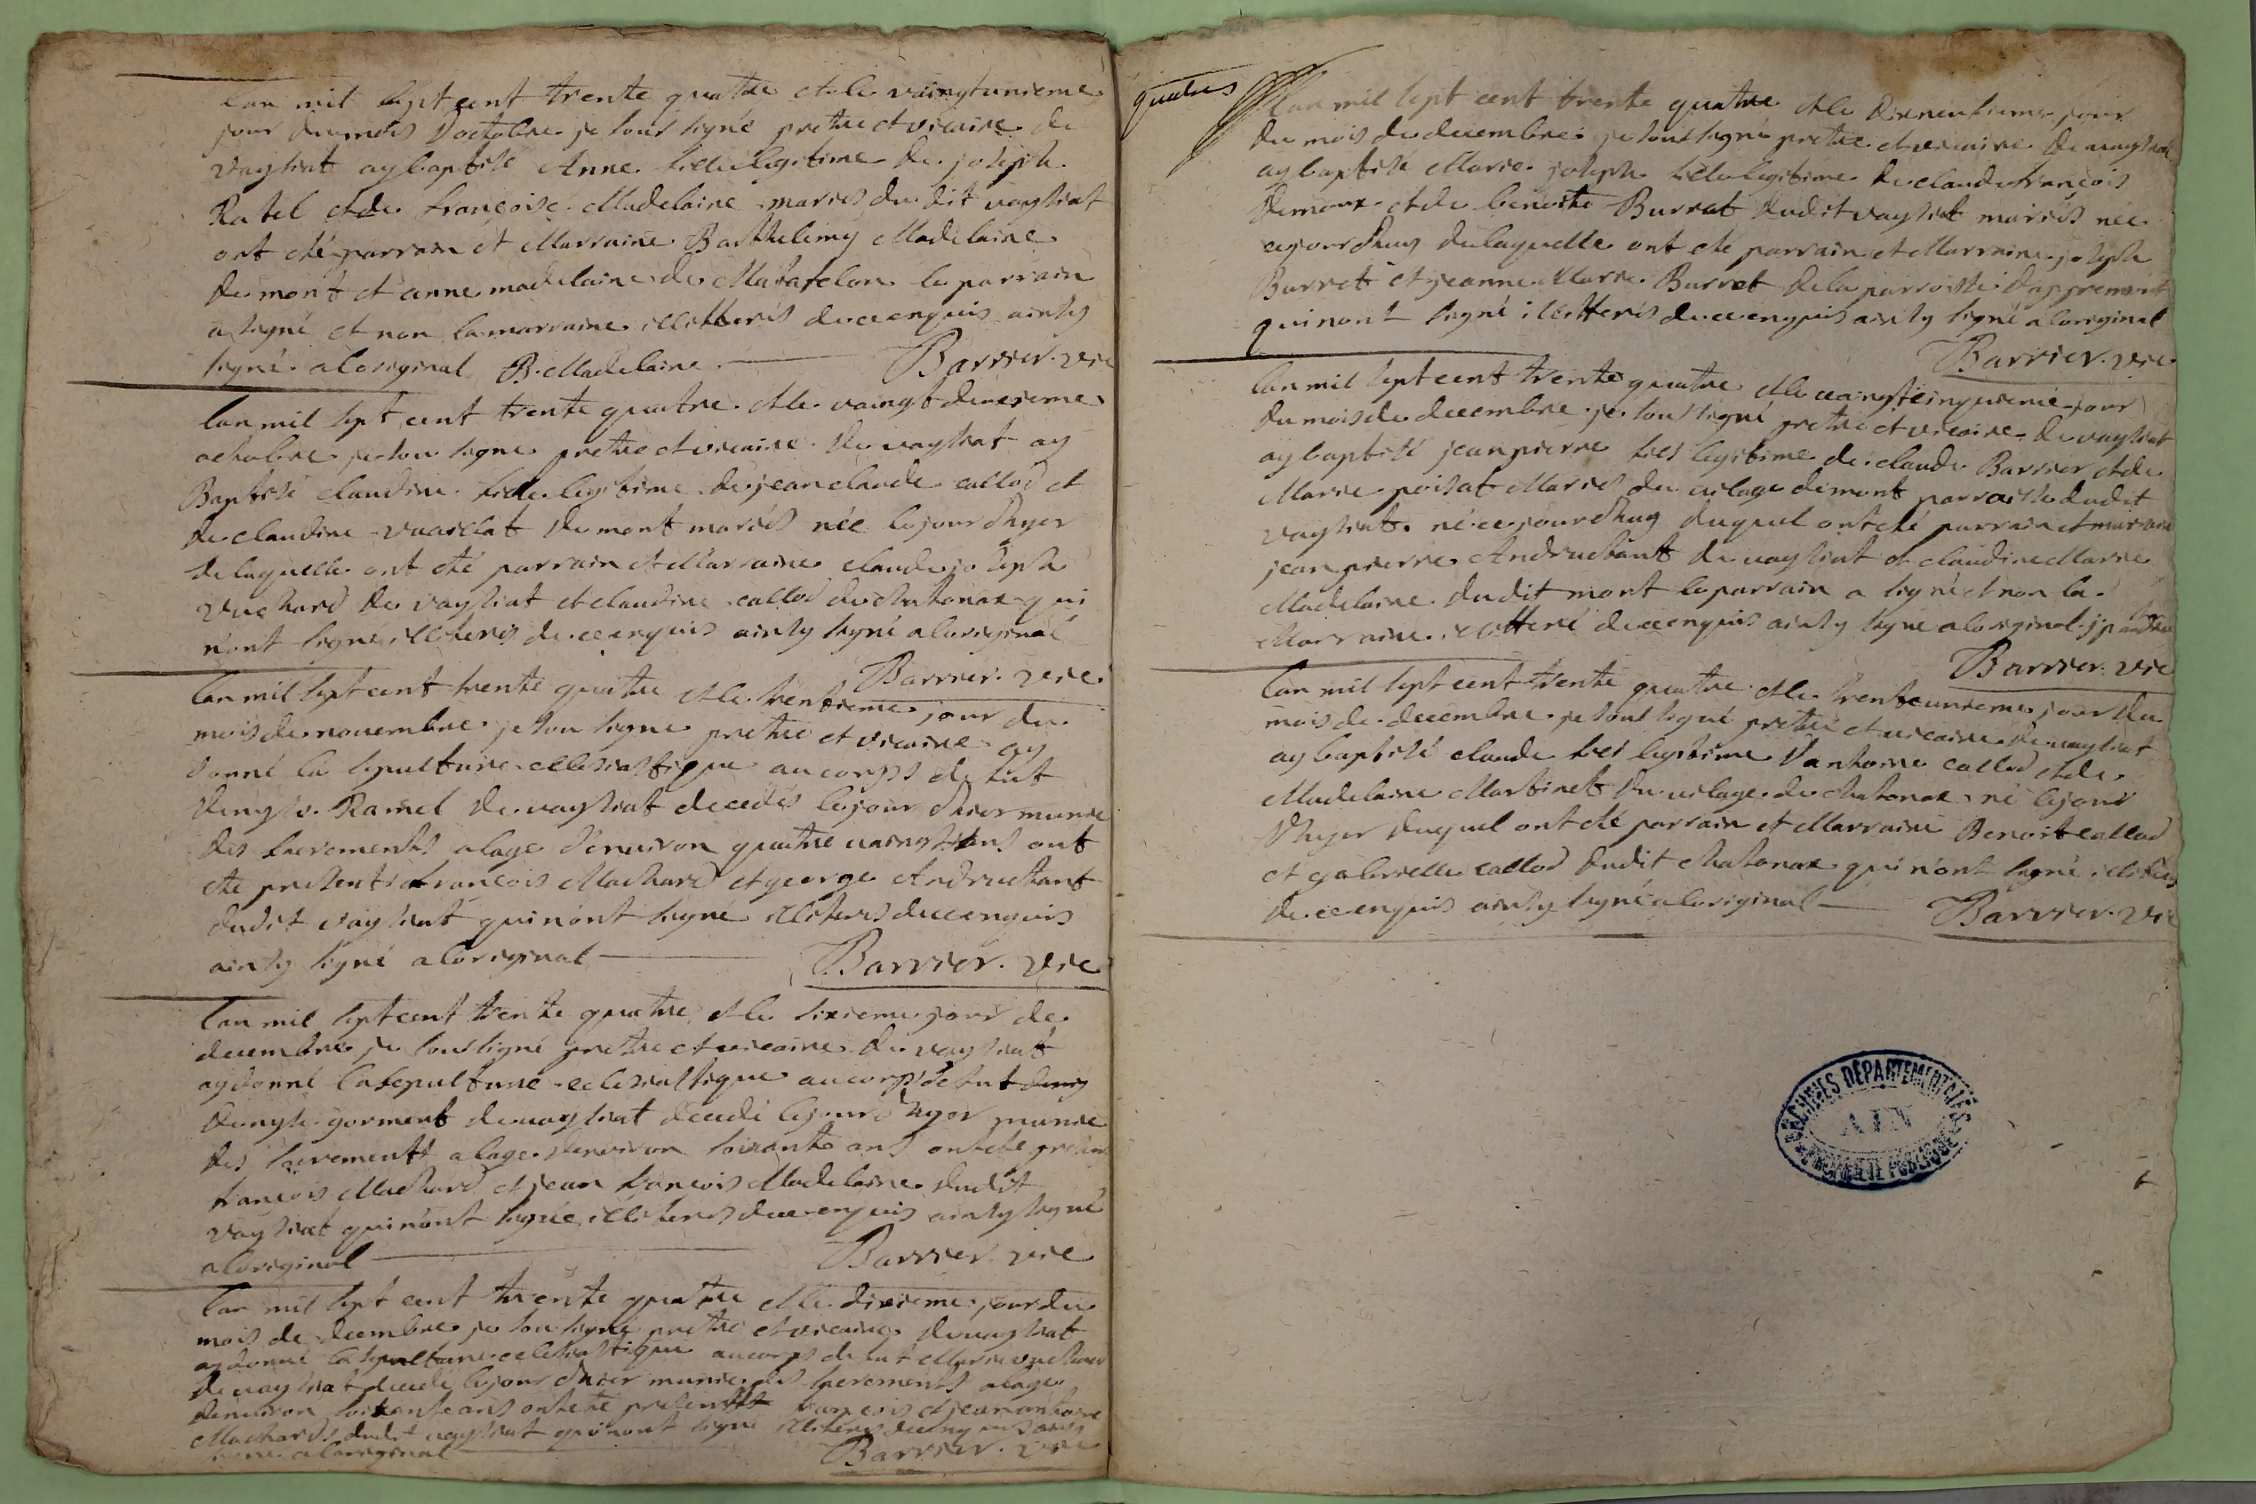 lan mil sept cent trente quatre et le vaingtunieme
jour du mois doctobre je sous signé pretre et vicaire de
vaysiat ay baptisé Anne fille legitime de joseph
Ratel et de françoise Madelaine mariés du dit vaysiat
ont eté parrain et Marraine Barthelemy Madelaine
de mont et anne madelaine de Matafelon le parrain
a signé et non la marraine illitterés de ce enquis ainsy
signé a loriginal B. Madelaine Barrier. vic
lan mil sept cent trente quatre et le vaingt deuxieme
octobre je sou signe pretre et vicaire de vaysiat ay
Baptisé claudine fille legitime de jean claude callod et
de claudine vuaillat de mont mariés née le jour dhyer
de laquelle ont eté parrain et Marraine claude joseph
vuchard de vaysiat et claudine callod de chatonax qui
nont signé illiteres de ce enquis ainsy signé a loriginal
Barrier. vic
lan mil sept cent trente quatre et le trentieme jour du
mois de novembre je sou signe pretre et vicaire ay
donné la sepulture ecclesiastique au corps de fut
denyse Ramel de vaysiat decedés le jour dhier munie
des sacrements a lage denviron quatre vaingt ans ont
ete present françois Machard et george Andruetant
dudit vaysiat qui nont signé illiteres de ce enquis
ainsy signé a loriginal Barrier. vic
lan mil sept cent trente quatre et le sixieme jour de
decembre je sous signé pretre et vicaire de vaysiat
ay donné la sepulture eclesiastique au corps de fut
denyse gorment de vaysiat decedé le jour dhyer munie
des sacrements a lage denviron soixante ans ont ete
françois Machard et jean françois Madelaine dudit
vaysiat qui nont signé illiteres de ce enquis ainsy signé
a loriginal Barrier. vic
lan mil sept cent trente quatre et le dixieme jour du
mois de decembre je sou signé pretre et vicaire de vaysiat
ay donné la sepulture eclesiastique au corps de fut Marie vuchard
de vaysiat decede le jour dhier munie des sacrements a lage
denviron soixante ans ont ete present françois et jean antoine
Machards dudit vaysiat qui nont signé illiteres de ce enquis ainsy
signe a loriginal Barrier. vic
quatres
lan mil sept cent trente quatre et le dixneufieme jour
du mois de decembre je sous signé pretre et vicaire de vaysiat
ay baptisé Marie joseph fille legitime de claude françois
et de benoite Burret dudit vaysiat mariés née
cejourdhuy de laquelle ont eté parrain et Marraine joseph
Burret et jeanne Marie Burret de la parroisse dapremont
qui nont signé illitterés de ce enquis ainsy signé a loriginal
Barrier. vic
lan mil sept cent trente quatre et le vaingtcinquieme jour
du mois de decembre je sous signé pretre et vicaire de vaysiat
ay baptisé jean pierre fils legitime de claude Barrier et de
Marie poisat Mariés du vilage de mont parroisse dudit
vaysiat né ce jourdhuy duquel ont eté parrain et
jean pierre Andruetant de vaysiat et claudine Marie
Madelaine dudit mont le parrain a signé et non la
Marraine illitteré de ce enquis ainsy signé a loriginal
Barrier. vic
lan mil sept cent trente quatre et le trenteunieme jour du
mois de decembre je sous signé pretre et vicaire de vaysiat
ay baptisé claude fils legitime dantoine callod et de
Madelaine Martinet du vilage de chatonax né le jour
dhyer duquel ont eté parrain et Marraine Benoit callod
et gabrielle callod dudit chatonax qui nont signé illiteres
de ce enquis ainsy signé a loriginal Barrier. vic
ARCHIVES DÉPARTEMENTALES
AIN